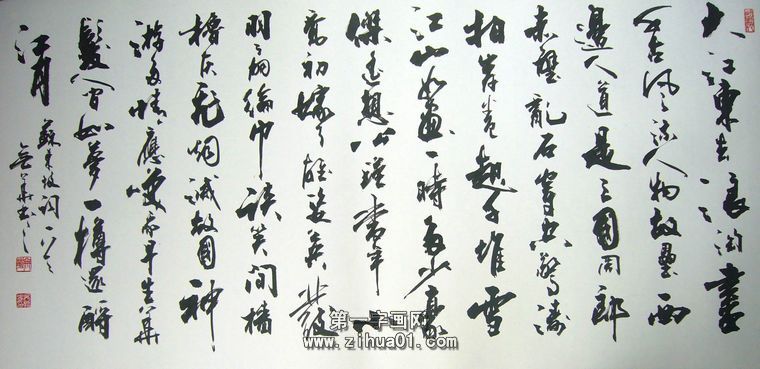 大江東去浪淘盡
千古風流人物故壘西
邊人道是三國周郎
赤壁亂石穿空驚濤
拍岸卷起千堆雪
江山如畫一時多少豪
傑遙想公瑾當年小
喬初嫁了雄姿英發
羽扇綸巾談笑間檣
櫓灰飛烟滅故國神
游多情應笑我早生華
髮人間如夢一樽還酹
江月
蘇東坡詞
第一字画网
www.zihua01.com